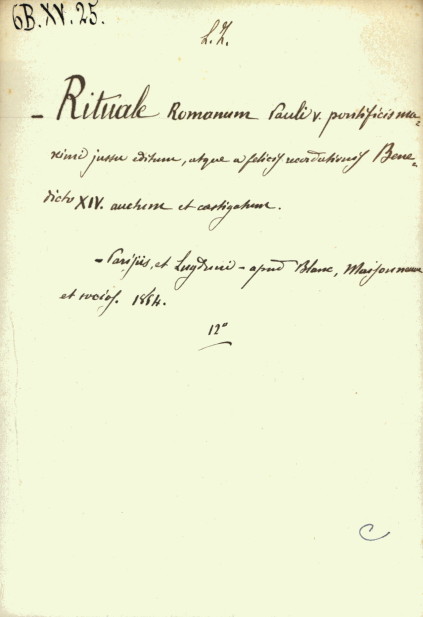 6B.XV.25.
L.Z.
- Rituale Romanum Pauli V. pontificis ma-
ximi jussu editum, atque a felicis recordationis Bene-
dicto XIV. auctum et castigatum.
- Parisiis, et Lugduni - apud Blanc, Maisonneuve
et socios. 1864.
12º
C